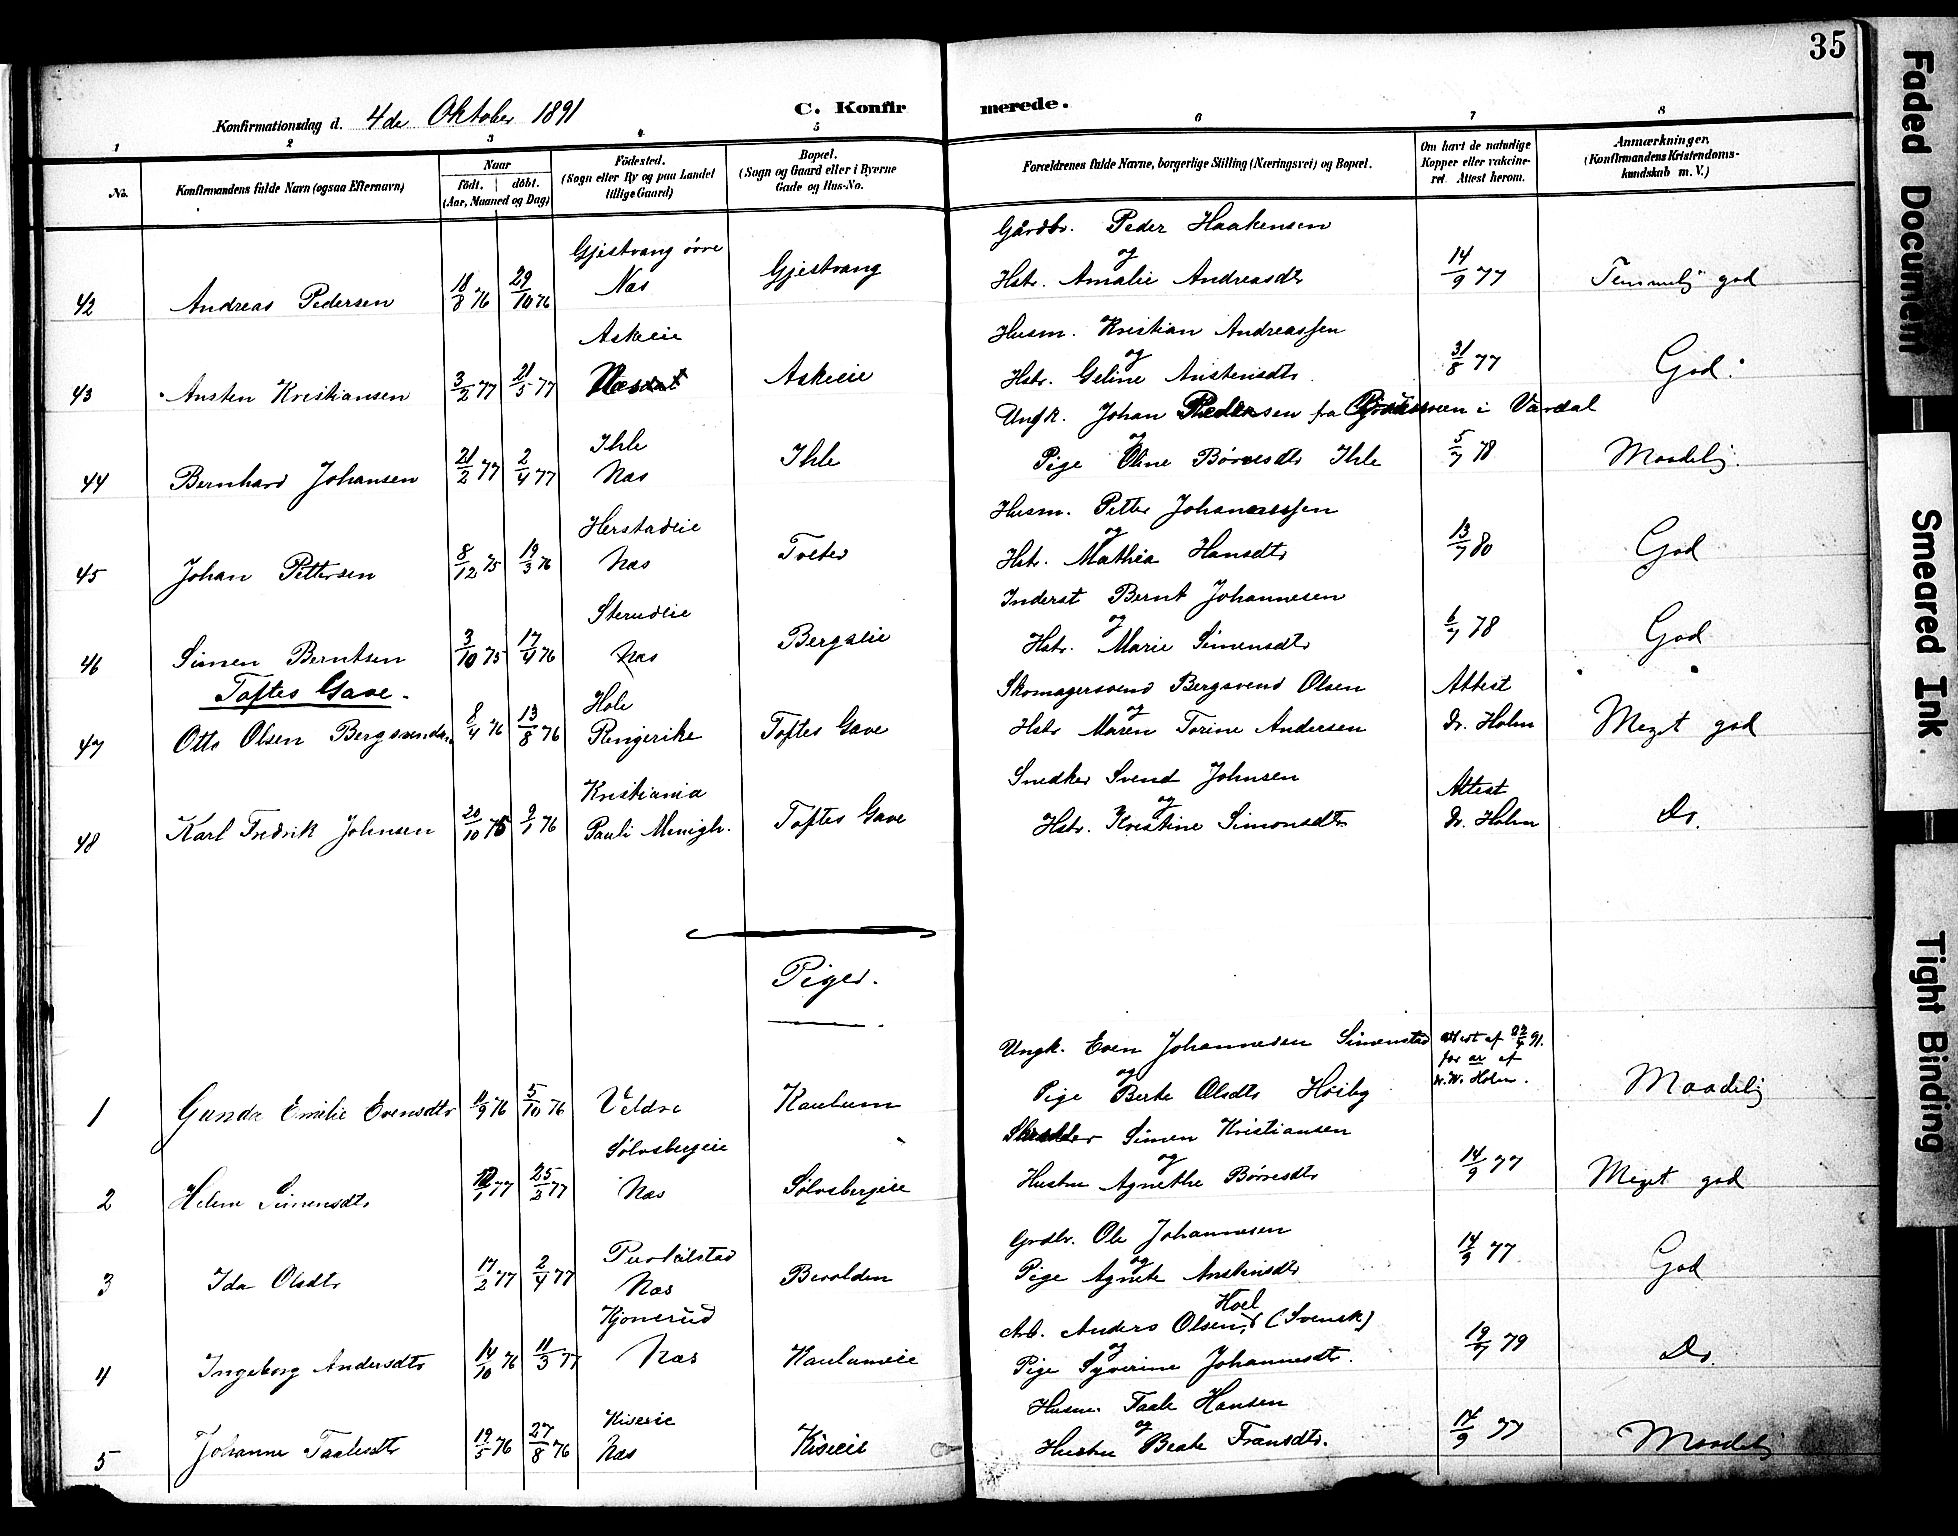 35
Konfirmationsdag d. 4de Oktober 1891
C. Konfirmerede.
1 2 3 4 5 6 7 8
No.
Konfirmandens fulde Navn (ogsaa Efternavn)
Naar
født. døbt.
(Aar, Maaned og Dag)
Fødested.
(Sogn eller By og paa Landet
tillige Gaard)
Bopæl.
(Sogn og Gaard eller i Byerne
Gade og Hus-No.
Forældrenes fulde Navne, borgerlige Stilling (Næringsvei) og Bopæl.
Om havt de naturlige
Kopper eller vakcine-
ret Attest herom.
Anmærkninger.
(Konfirmandens Kristendoms-
kundskab m. V.)
Gjestvang övre Gårdbr. Peder Haakensen
42 Andreas Pedersen 18/8 76 29/10 76 Næs Gjestvang og Hstr. Amalie Andreasdtr 14/9 77 Temmelig god
Askeie Husm. Kristian Andreassen
43 Ansten Kristiansen 3/2 77 21/5 77 Askeie og Hstr. Geline Anstensdtr. 31/8 77 God.
Ihle Ungk. Johan Pedersen fra i Vardal
44 Bernhard Johansen 21/2 77 2/4 77 Næs Ihle og Pige Oline Børresdtr Ihle 5/7 78 Maadelig.
Herstadeie Husm. Petter Johannessen
45 Johan Pettersen 8/12 75 19/3 76 Næs Tveter og Hstr. Mathea Hansdtr 13/7 80 God
Skrudeie Inderst Bernt Johannesen
46 Simen Berntsen 3/10 75 17/4 76 Næs Bergseie og Hstr. Marie Simensdtr 6/7 78 God
Toftes Gave.
Hole Skomagersvend Bergsvend Olsen Attest
47 Otto Olsen Bergsvendsen 8/4 76 13/8 76 Ringerike Toftes Gave og Hstr Maren Torine Andersen Dr. Holm Meget god
Kristiania Snedker Svend Johnsen Attest
48 Karl Fredrik Johnsen 20/10 75 9/1 76 Pauli Menigh. Toftes Gave og Hstr. Kristine Simonsdtr Dr. Holm Do.
Piger.
Ungk. Even Johannesen Simenstad attest af 22/9 91.
for ar af
Dr. W. Holm.
1 Gunda Emilie Evensdtr 11/9 76 5/10 76 Veldre Kaulum og Pige Berte Olsdtr Höiby Maadelig
Sølvsbergeie Skrædder Simen Kristiansen
2 Helene Simensdtr 77 25/2 77 Næs Sølvsbergeie og Hustru Agnethe Børresdtr 14/9 77 Meget god
Grdbr. Ole Johannesen
3 Ida Olsdtr 17/2 77 2/4 77 Næs Bevolden og Pige Agnete Anstensdtr 14/9 77 God
Kjonerud Arb. Anders Olsen, Hoel (Svensk)
4 Ingeborg Andersdtr 14/10 76 11/3 77 Næs Kaulumeie og Pige Syverine Johannesdtr. 19/7 79 Do.
Kiseeie Husm. Taale Hansen
5 Johanne Taalesdtr 19/5 76 27/8 76 Næs Kiseeie og Hustru Beate Fransdtr. 14/9 77 Maadelig
Faded Document
Smeared Ink.
Tight Binding